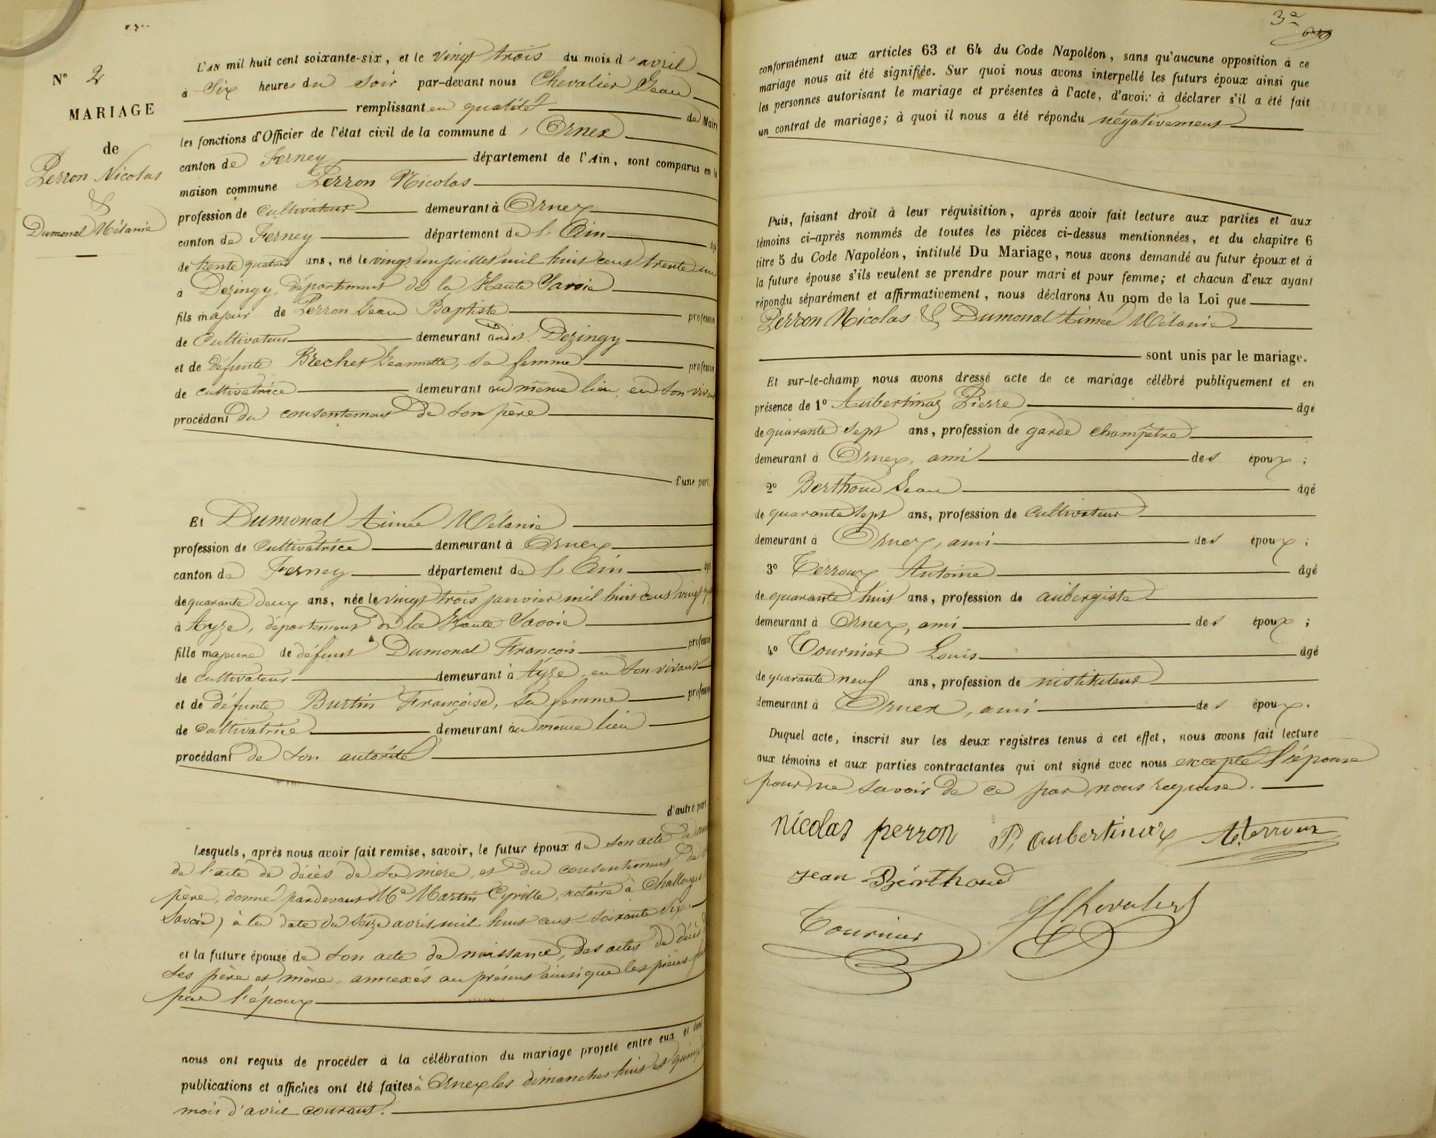 N° 2
MARIAGE
de
Perron Nicolas
&
Dumonal Mélanie
L'AN mil huit cent soixante-six, et le vingt trois du mois d'avril
à six heures du soir par-devant nous Chevalier Jean
remplissant en qualité de Maire
les fonctions d'Officier de l'état civil de la commune d'Ornex
canton de Ferney département de l'Ain, sont comparus en la
maison commune Perron Nicolas
profession de cultivateur demeurant à Ornex
canton de Ferney département de l'Ain
de trente quatre ans, né le vingt un juillet mil huit cent trente un
à Dezingy, département de la Haute Savoie
fils majeur de Perron Jean Baptiste profession
de cultivateur demeurant Dezingy
et de défunte Brechet Jeannette, sa femme profession
de cultivatrice demeurant au même lieu, en son vivant
procédant du consentement de son père
d'une part
Et Dumonal Aimée Mélanie
profession de cultivatrice demeurant à Ornex
canton de Ferney département de l'Ain
de quarante deux ans, née le vingt trois janvier mil huit cent vingt
à Ayze, département de la Haute Savoie
fille majeure de défunt Dumonal François profession
de cultivateur demeurant à Ayze, en son vivant
et de défunte Burtin Françoise, sa femme profession
de cultivatrice demeurant au même lieu
procédant de son autorité
d'autre part
Lesquels, après nous avoir fait remise, savoir, le futur époux de son acte de
de l'acte de décès de sa mère, et du consentement de
père, donné pardevant Me Martin Cyrille, notaire à Challonges
Savoie) à la date du seize avril mil huit cent soixante six.
et la future épouse de son acte de naissance, des actes de décès
ses père et mère, annexés au présent ainsi que les pièces
par l'époux
nous ont requis de procéder à la célébration du mariage projeté entre eux et dont
publications et affiches ont été faites à Ornex les dimanches huit et quinze
mois d'avril courant.
3e
conformément aux articles 63 et 64 du Code Napoléon, sans qu'aucune opposition à ce
mariage nous ait été signifiée. Sur quoi nous avons interpellé les futurs époux ainsi que
les personnes autorisant le mariage et présentes à l'acte, d'avoir à déclarer s'il a été fait
un contrat de mariage; à quoi il nous a été répondu négativement
Puis, faisant droit à leur réquisition, après avoir fait lecture aux parties et aux
témoins ci-après nommés de toutes les pièces ci-dessus mentionnées, et du chapitre 6
titre 5 du Code Napoléon, intitulé Du Mariage, nous avons demandé au futur époux et à
la future épouse s'ils veulent se prendre pour mari et pour femme; et chacun d'eux ayant
répondu séparément et affirmativement, nous déclarons Au nom de la Loi que
Perron Nicolas & Dumonal Aimée Mélanie
sont unis par le mariage.
Et sur-le-champ nous avons dressé acte de ce mariage célébré publiquement et en
présence de 1° Aubertinaz Pierre âgé
de quarante sept ans, profession de garde champêtre
demeurant à Ornex, ami des époux;
2° Berthoud Jean âgé
de quarante sept ans, profession de cultivateur
demeurant à Ornex, ami des époux;
3° Terroux Antoine âgé
de quarante huit ans, profession de aubergiste
demeurant à Ornex, ami des époux;
4° Tournier Louis âgé
de quarante neuf ans, profession de instituteur
demeurant à Ornex, ami des époux.
Duquel acte, inscrit sur les deux registres tenus à cet effet, nous avons fait lecture
aux témoins et aux parties contractantes qui ont signé avec nous excepté l'épouse
pour ne savoir de ce par nous requise.
nicolas perron P. aubertinaz At. terroux
jean Bérthoud
Tournier J Chevalier